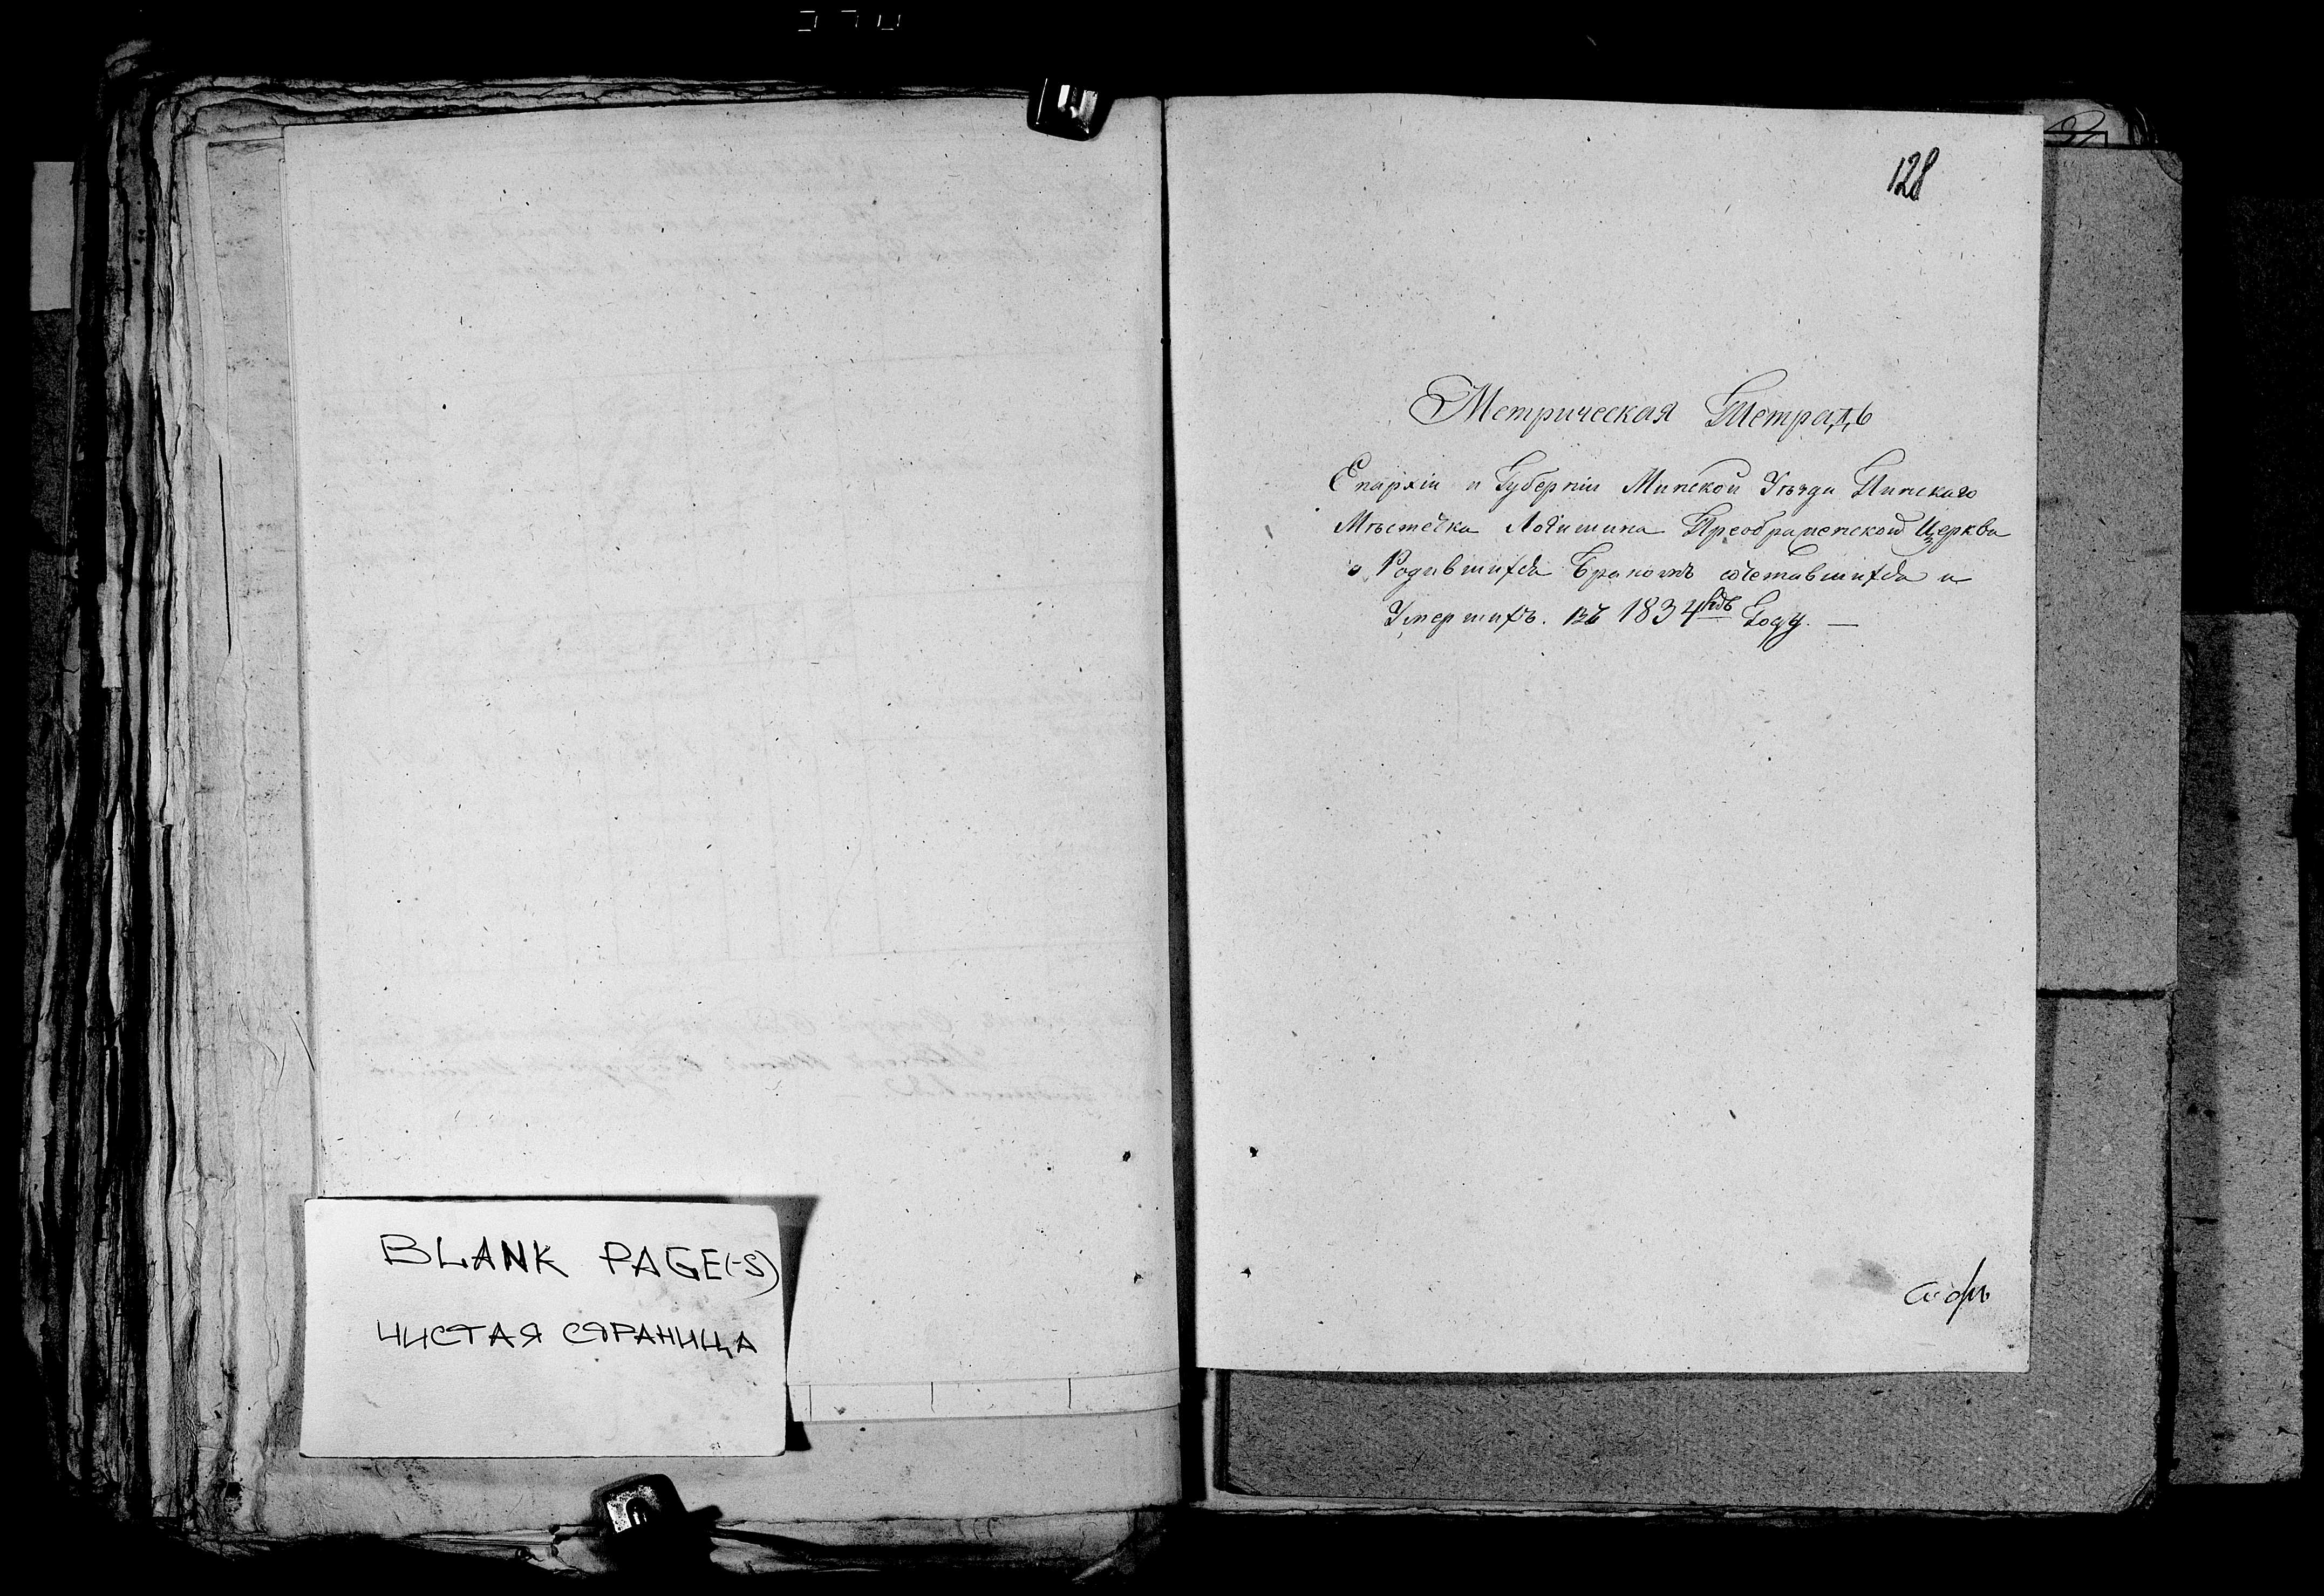 BLANK PAGE(-S)
ЧИСТАЯ СТРАНИЦА
128
Метрическая Тетрадь
Епархіи и Губерніи Минской Уѣзда Пинскаго
Мѣстечка Логишина Преображенской Церкви
о Родившихся Бракомъ сочетавшихся и
Умершихъ. въ 1834 Году. —